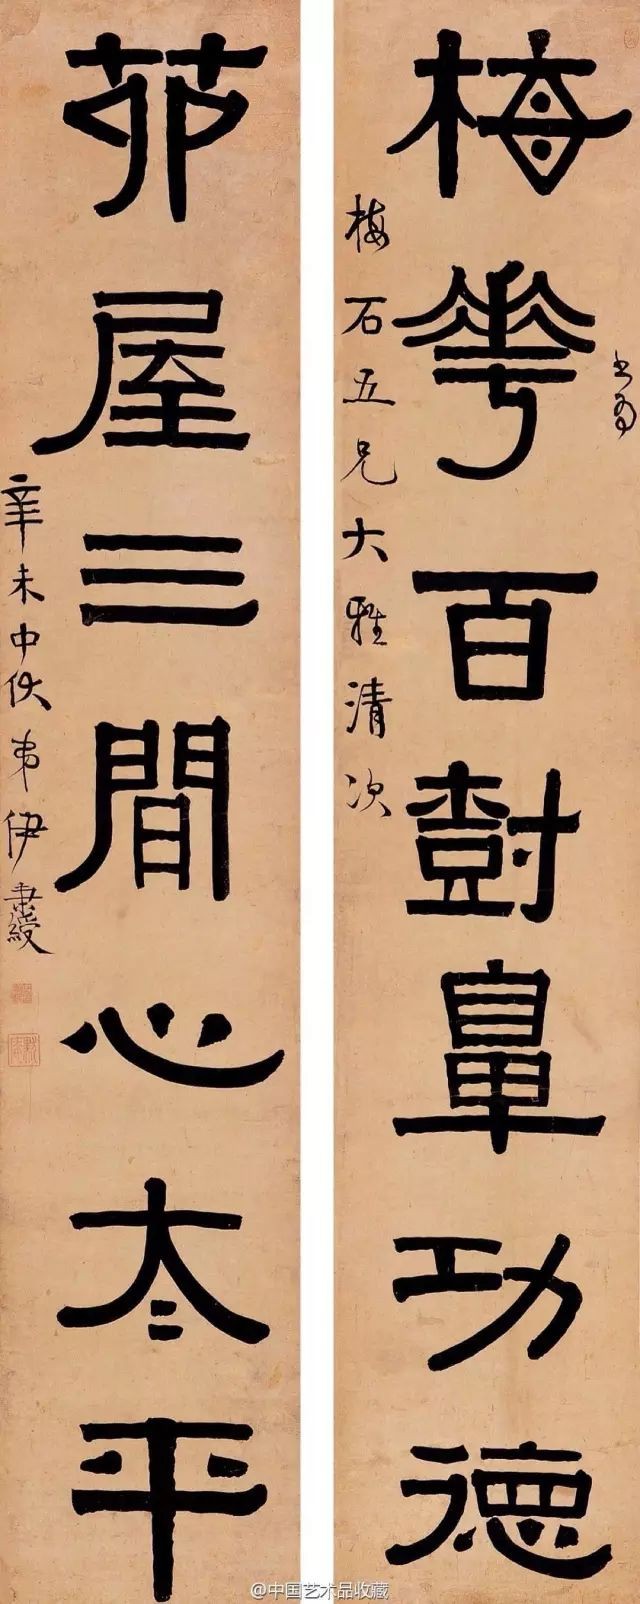 書為
梅華百樹鼻功德
梅石五兄大雅清次
茆屋三間心太平
辛未中伏弟伊秉綬
@中国艺术品收藏